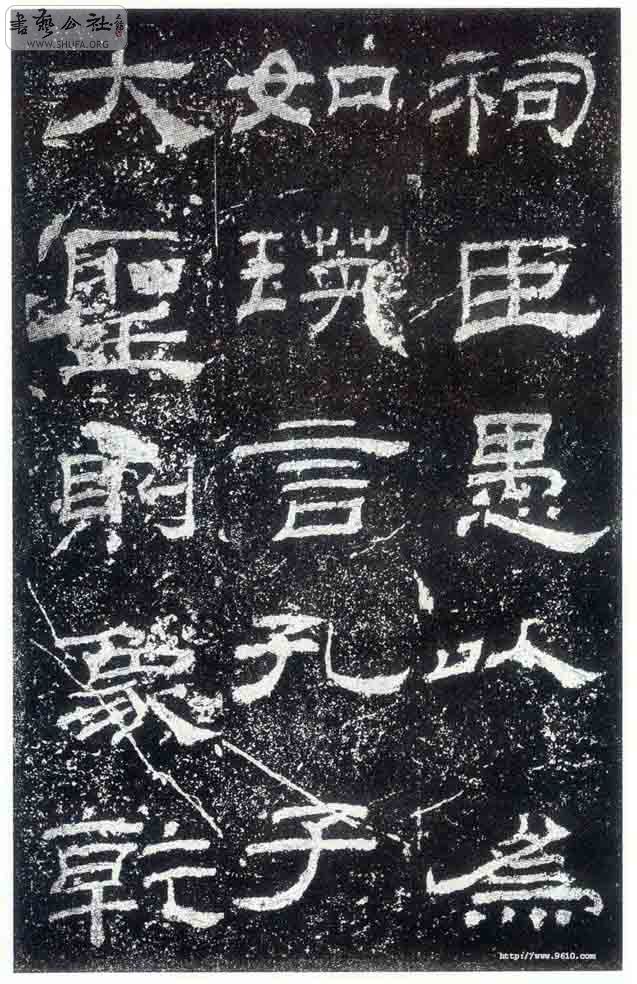 祠臣愚以為
如瑛言孔子
大聖則象乾
書藝公社
WWW.SHUFA.ORG
http://www.9610.com